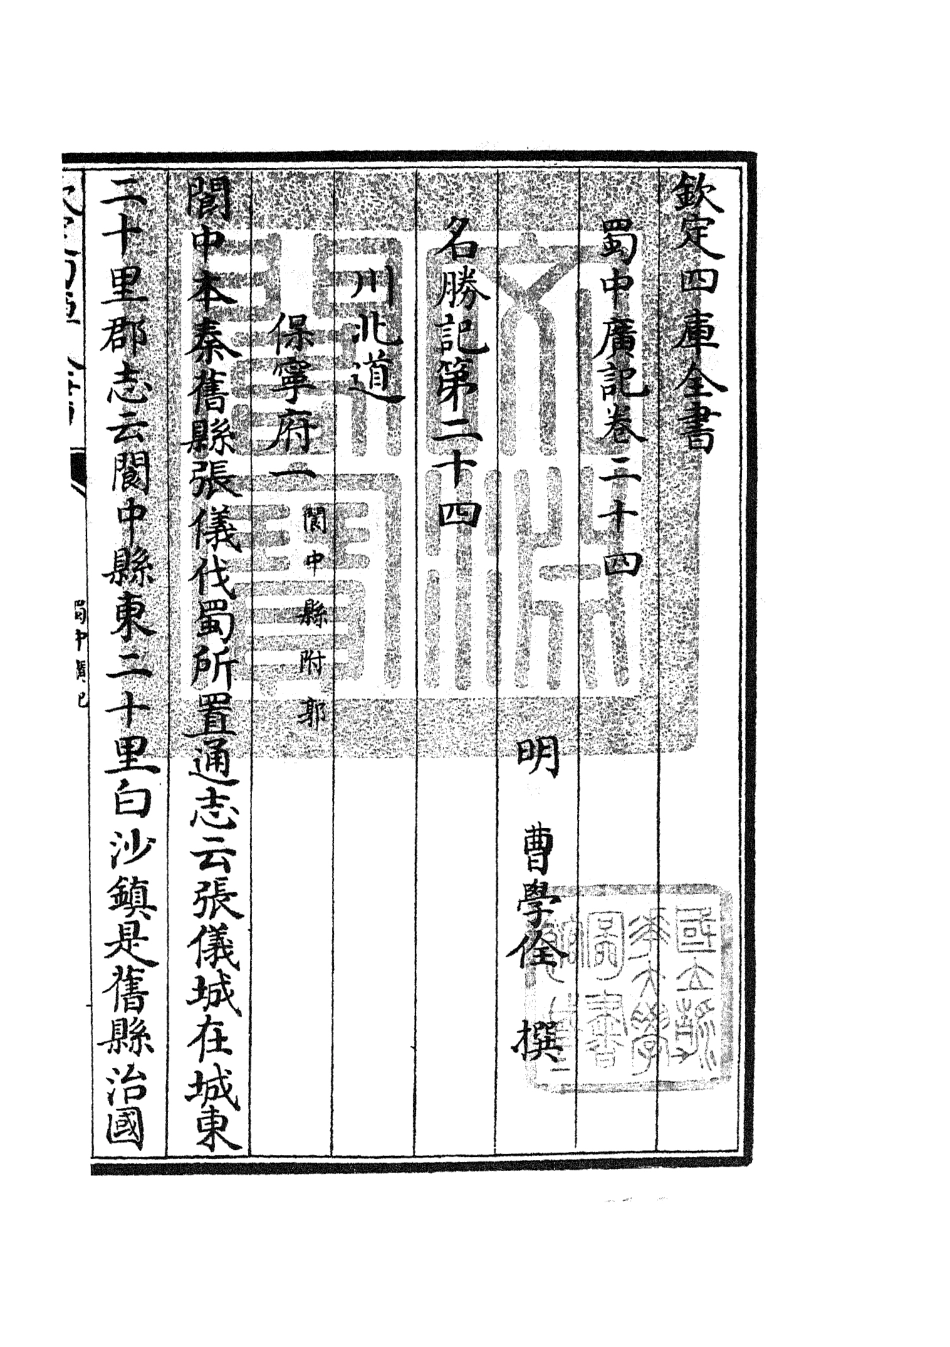 欽定四庫全書
蜀中廣記卷二十四
明 曹學佺 撰
名勝記第二十四
川北道
保寧府一 閬中縣附郭
閬中本秦舊縣張儀伐蜀所置通志云張儀城在城東
二十里郡志云閬中縣東二十里白沙鎮是舊縣治國
蜀中廣記